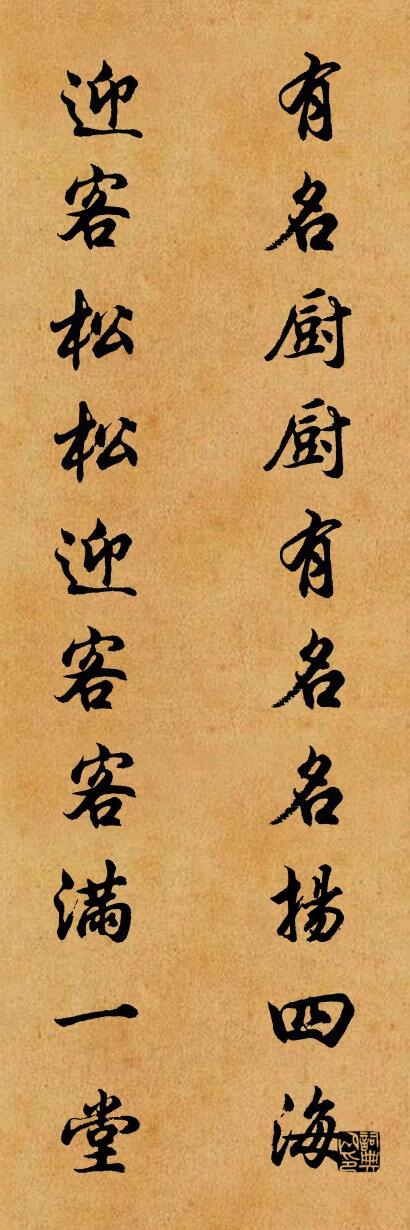 有名厨厨有名名揚四海
迎客松松迎客客满一堂